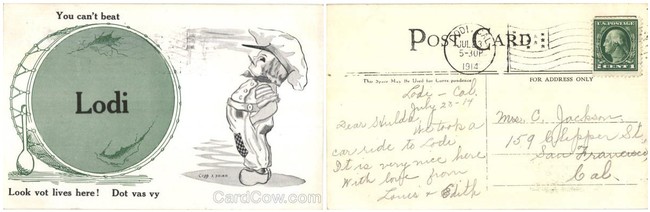 You can't beat
Lodi
Look vot lives here! Dot vas vy
CardCow.com
POST CARD
LODI,
JUL 23
5-30P
1914
U.S. POSTAGE
1 CENT 1
This Space May Be Used for Correspondence
FOR ADDRESS ONLY
Lodi - Cal.
July 23-14
Dear Hulda
We took a
car ride to Lodi
It is very nice here
With love from
Louis & Edith
Mrs. C. Jackson
159 Clipper St,
San Francisco,
Cal.